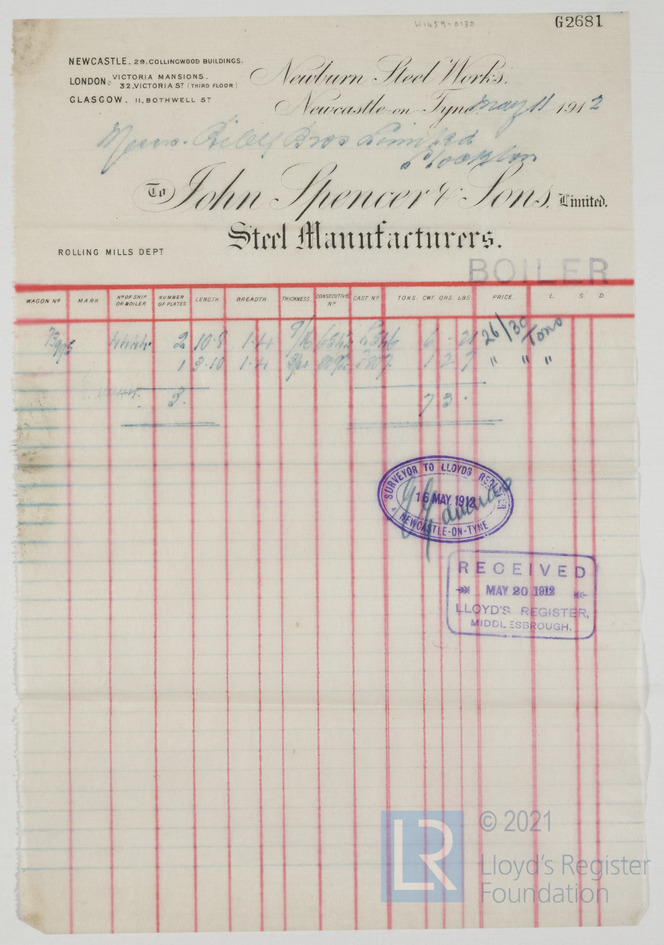 W1459-0130
G2681
NEWCASTLE. 29. COLLINGWOOD BUILDINGS.
LONDON: VICTORIA MANSIONS.
32, VICTORIA ST (THIRD FLOOR)
GLASGOW. 11, BOTHWELL ST
Newburn Steel Works,
Newcastle-on-Tyne May 11 1912
Messrs. Riley Bros Limited
Stockton
To John Spencer & Sons, Limited.
Steel Manufacturers.
ROLLING MILLS DEPT
BOILER
WAGON No MARK No OF SHIP OR BOILER NUMBER OF PLATES LENGTH BREADTH THICKNESS CONSECUTIVE No CAST No TONS. CWT. QRS. LBS. PRICE. L. S. D.
2 10.8 1.4 9/16 6 21 26/30 Tons
1 3.10 1.4 1 2 7 " " "
3. 7 3.
SURVEYOR TO LLOYDS REGISTER
16 MAY 1912
NEWCASTLE-ON-TYNE
RECEIVED
MAY 20 1912
LLOYD'S REGISTER,
MIDDLESBROUGH.
LR © 2021
Lloyd's Register
Foundation